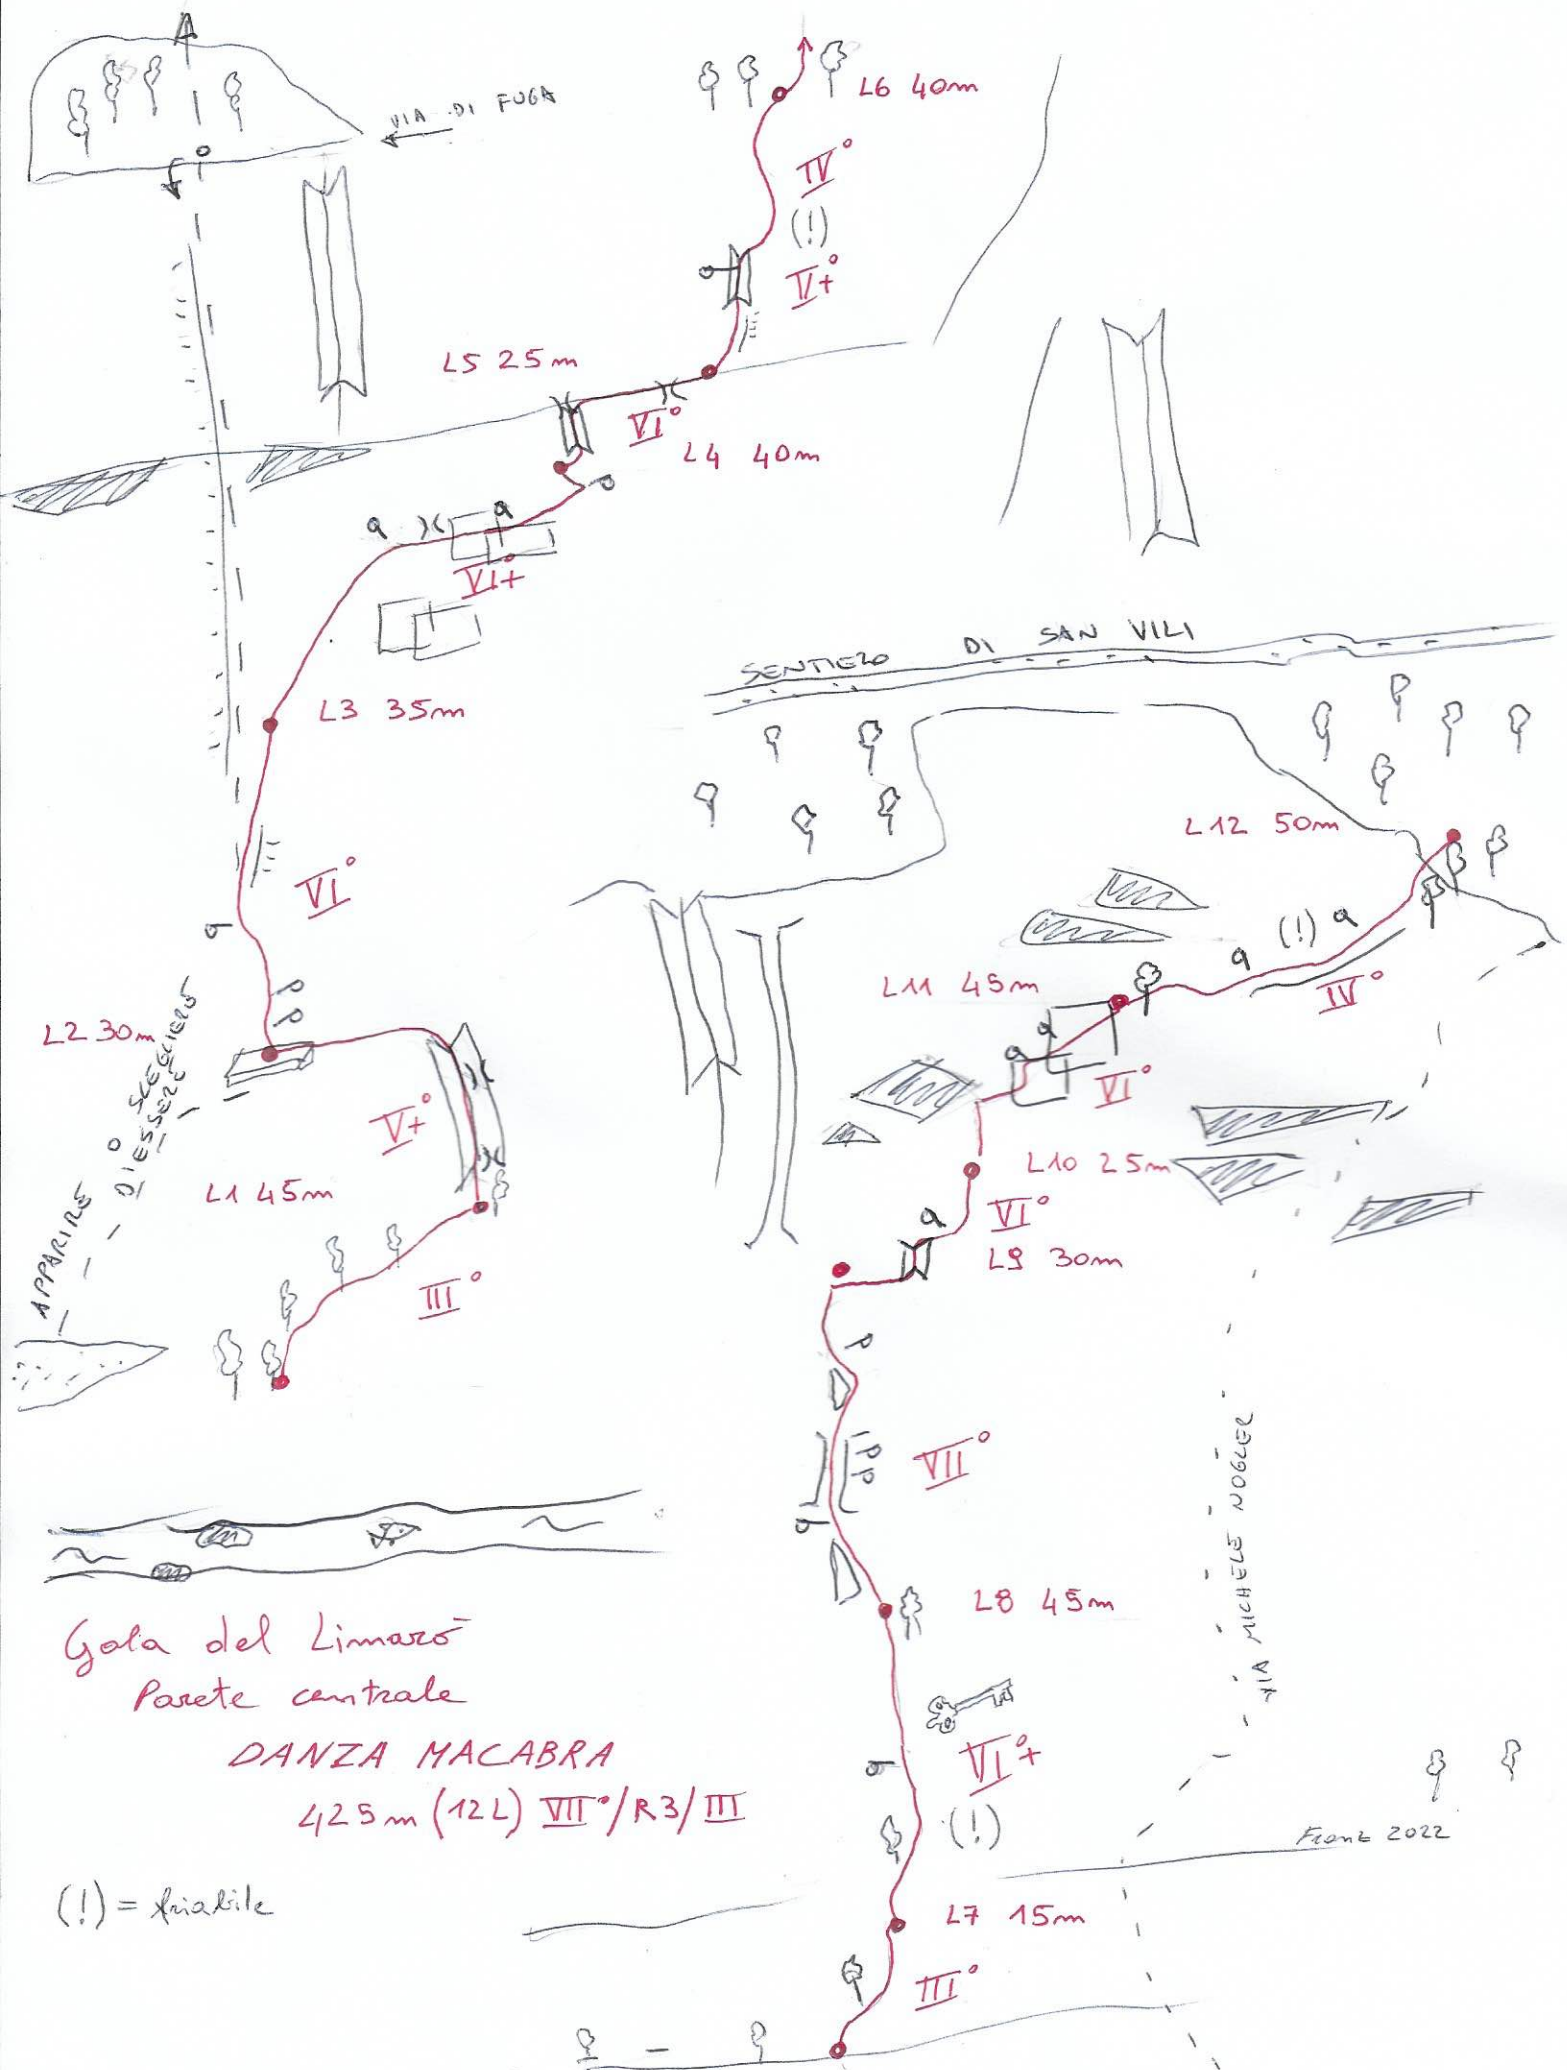 VIA DI FUGA
L6 40m
IV°
(!)
V+°
L5 25m
VI°
L4 40m
VI+°
L3 35m
VI°
L2 30m
V+°
L1 45m
III°
APPARIRE
O SCEGLIERE
DI ESSERE
SENTIERO DI SAN VILI
L12 50m
(!)
IV°
L11 45m
VI°
L10 25m
VI°
L9 30m
VII°
L8 45m
VI°+
(!)
L7 15m
III°
VIA MICHELE NOGLER
Franz 2022
Gola del Limarò
Parete centrale
DANZA MACABRA
425m (12L) VII°/R3/III
(!) = friabile